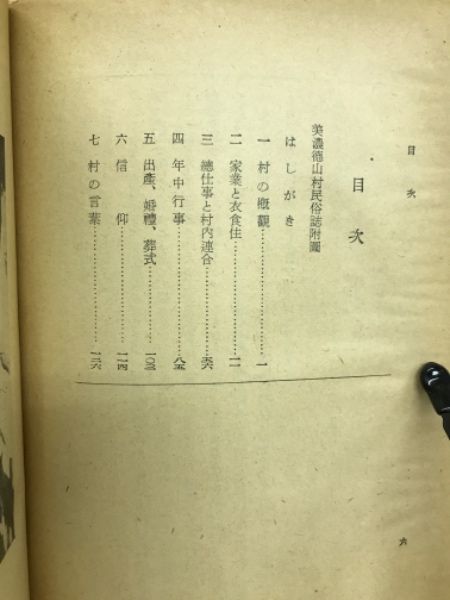 目次
目次
美濃德山村民俗誌附圖
はしがき
一 村の槪觀…………一
二 家業と衣食住…………一一
三 總仕事と村內連合…………五六
四 年中行事…………八五
五 出產、婚禮、葬式…………一〇三
六 信仰…………一一四
七 村の言葉…………一三六
六